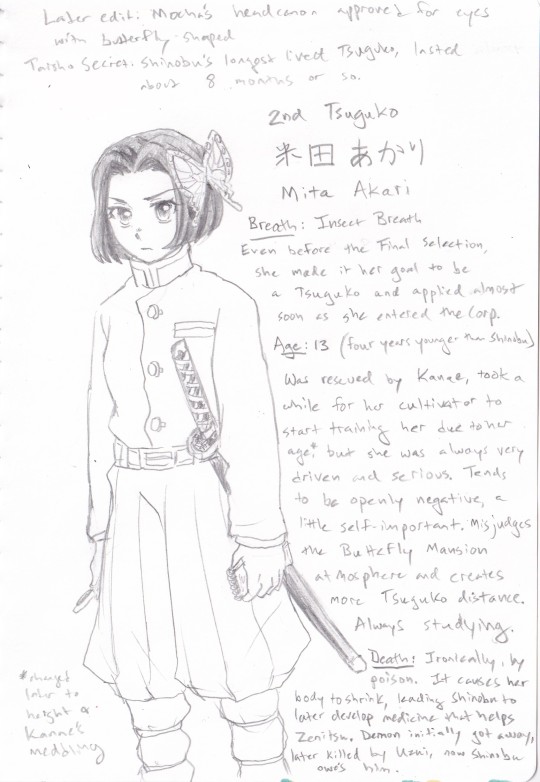 Later edit: Mocha's headcanon approved for eyes
with butterfly shaped
Taisho Secret: Shinobu's longest lived Tsuguko, lasted
about 8 months or so.
2nd Tsuguko
米田あかり
Mita Akari
Breath: Insect Breath
Even before the Final Selection,
she made it her goal to be
a Tsuguko and applied almost
soon as she entered the Corp.
Age: 13 (four years younger than Shinobu)
Was rescued by Kanae, took a
while for her cultivator to
start training her due to her
age,* but she was always very
driven and serious. Tends
to be openly negative, a
little self-important. Misjudges
the Butterfly Mansion
atmosphere and creates
more Tsuguko distance.
Always studying.
Death: Ironically, by
poison. It causes her
body to shrink, leading Shinobu to
later develop medicine that helps
Zenitsu. Demon initially got away,
later killed by Uzui, now Shinobu
owe's him.
*changed
later to
height &
Kanae's
meddling